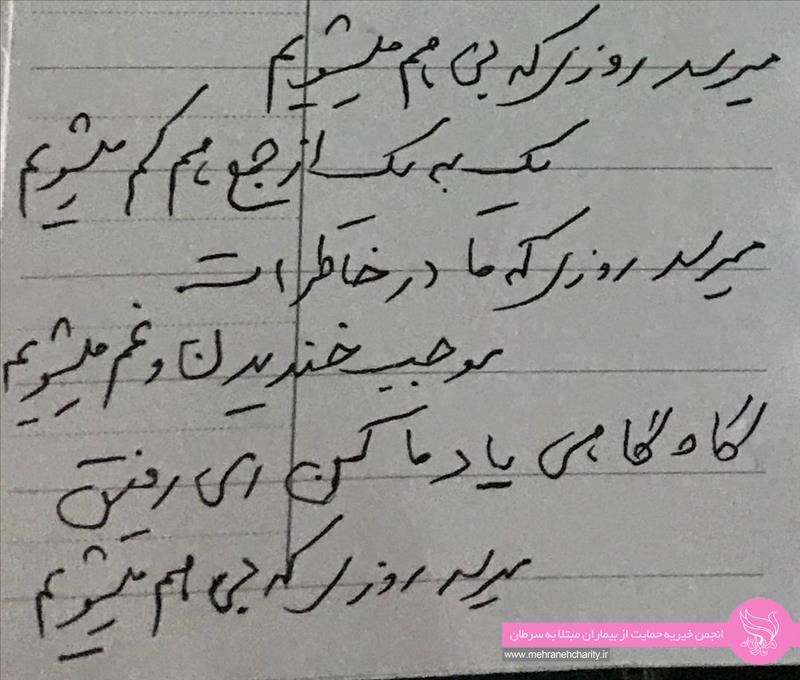 میرسد روزی که بی هم میشویم
یک به یک از جمع هم کم میشویم
میرسد روزی که ما در خاطرات
موجب خندیدن و غم میشویم
گاه گاهی یاد ما کن ای رفیق
میرسد روزی که بی هم میشویم
انجمن خیریه حمایت از بیماران مبتلا به سرطان
www.mehranehcharity.ir